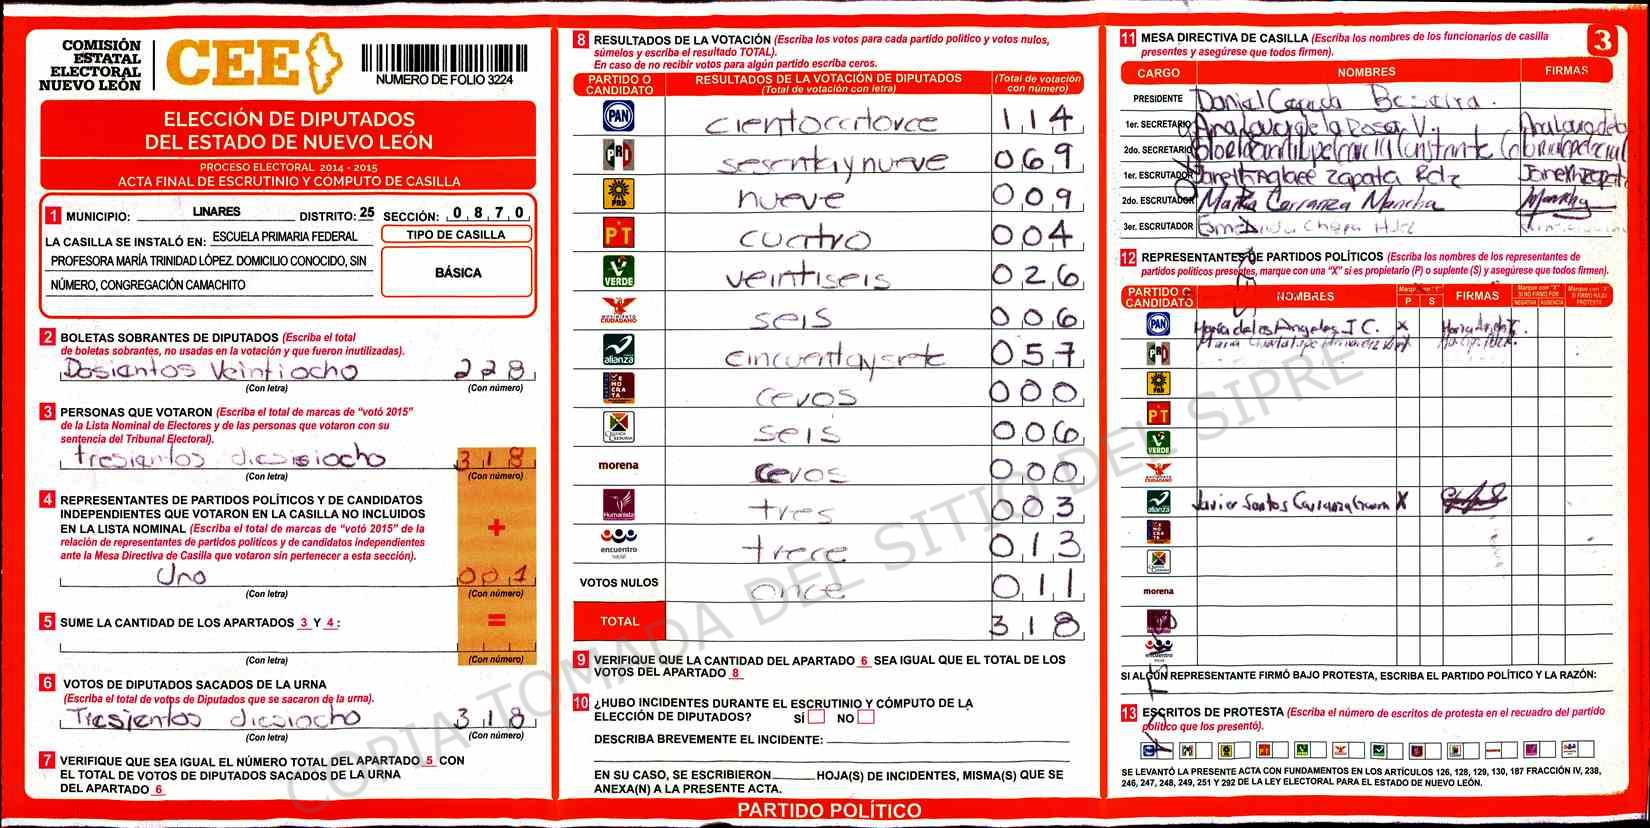 COMISIÓN
ESTATAL
ELECTORAL
NUEVO LEÓN
CEE
NUMERO DE FOLIO 3224
ELECCIÓN DE DIPUTADOS
DEL ESTADO DE NUEVO LEÓN
PROCESO ELECTORAL 2014 - 2015
ACTA FINAL DE ESCRUTINIO Y CÓMPUTO DE CASILLA
1 MUNICIPIO: LINARES DISTRITO: 25 SECCIÓN: 0 8 7 0
LA CASILLA SE INSTALÓ EN: ESCUELA PRIMARIA FEDERAL
PROFESORA MARÍA TRINIDAD LÓPEZ. DOMICILIO CONOCIDO, SIN
NÚMERO, CONGREGACIÓN CAMACHITO
TIPO DE CASILLA
BÁSICA
2 BOLETAS SOBRANTES DE DIPUTADOS (Escriba el total
de boletas sobrantes, no usadas en la votación y que fueron inutilizadas).
Dosientos Veintiocho 228
(Con letra) (Con número)
3 PERSONAS QUE VOTARON (Escriba el total de marcas de "votó 2015"
de la Lista Nominal de Electores y de las personas que votaron con su
sentencia del Tribunal Electoral).
tresientos diesisiocho 318
(Con letra) (Con número)
4 REPRESENTANTES DE PARTIDOS POLÍTICOS Y DE CANDIDATOS
INDEPENDIENTES QUE VOTARON EN LA CASILLA NO INCLUIDOS
EN LA LISTA NOMINAL (Escriba el total de marcas de "votó 2015" de la
relación de representantes de partidos políticos y de candidatos independientes
ante la Mesa Directiva de Casilla que votaron sin pertenecer a esta sección).
+
Uno 001
(Con letra) (Con número)
5 SUME LA CANTIDAD DE LOS APARTADOS 3 Y 4 : =
(Con letra) (Con número)
6 VOTOS DE DIPUTADOS SACADOS DE LA URNA
(Escriba el total de votos de Diputados que se sacaron de la urna).
Tresientos diesiocho 318
(Con letra) (Con número)
7 VERIFIQUE QUE SEA IGUAL EL NÚMERO TOTAL DEL APARTADO 5 CON
EL TOTAL DE VOTOS DE DIPUTADOS SACADOS DE LA URNA
DEL APARTADO 6
8 RESULTADOS DE LA VOTACIÓN (Escriba los votos para cada partido político y votos nulos,
súmelos y escriba el resultado TOTAL).
En caso de no recibir votos para algún partido escriba ceros.
PARTIDO O CANDIDATO RESULTADOS DE LA VOTACIÓN DE DIPUTADOS (Total de votación con letra) (Total de votación con número)
PAN cientocatorce 114
PRI sesentaynueve 069
PRD nueve 009
PT cuatro 004
VERDE veintiseis 026
MOVIMIENTO CIUDADANO seis 006
alianza cincuentaysiete 057
DEMOCRATA ceros 000
CRUZADA CIUDADANA seis 006
morena ceros 000
Humanista tres 003
encuentro social trece 013
VOTOS NULOS once 011
TOTAL 318
9 VERIFIQUE QUE LA CANTIDAD DEL APARTADO 6 SEA IGUAL QUE EL TOTAL DE LOS
VOTOS DEL APARTADO 8
10 ¿HUBO INCIDENTES DURANTE EL ESCRUTINIO Y CÓMPUTO DE LA
ELECCIÓN DE DIPUTADOS? SÍ NO
DESCRIBA BREVEMENTE EL INCIDENTE:
EN SU CASO, SE ESCRIBIERON HOJA(S) DE INCIDENTES, MISMA(S) QUE SE
ANEXA(N) A LA PRESENTE ACTA.
PARTIDO POLÍTICO
11 MESA DIRECTIVA DE CASILLA (Escriba los nombres de los funcionarios de casilla
presentes y asegúrese que todos firmen).
3
CARGO NOMBRES FIRMAS
PRESIDENTE Daniel
1er. SECRETARIO Ana Laura de la Rosa V.
2do. SECRETARIO
1er. ESCRUTADOR Janeth Aglaee Zapata Rdz Janeth zapata
2do. ESCRUTADOR Martha Carranza Mancha Mancha
3er. ESCRUTADOR Esmeralda Chapa
12 REPRESENTANTES DE PARTIDOS POLÍTICOS (Escriba los nombres de los representantes de
partidos políticos presentes, marque con una "X" si es propietario (P) o suplente (S) y asegúrese que todos firmen).
PARTIDO O CANDIDATO NOMBRES Marque con "X" P S FIRMAS Marque con "X" SI NO FIRMÓ POR NEGATIVA AUSENCIA Marque con "X" SI FIRMÓ BAJO PROTESTA
PAN Maria de los Angeles I C. X
PRI Maria Guadalupe X
PRD
PT
VERDE
CIUDADANO
alianza Javier Santos Carranza X
morena
encuentro
SI ALGÚN REPRESENTANTE FIRMÓ BAJO PROTESTA, ESCRIBA EL PARTIDO POLÍTICO Y LA RAZÓN:
13 ESCRITOS DE PROTESTA (Escriba el número de escritos de protesta en el recuadro del partido
político que los presentó).
SE LEVANTÓ LA PRESENTE ACTA CON FUNDAMENTOS EN LOS ARTÍCULOS 126, 128, 129, 130, 187 FRACCIÓN IV, 238,
246, 247, 248, 249, 251 Y 292 DE LA LEY ELECTORAL PARA EL ESTADO DE NUEVO LEÓN.
COPIA TOMADA DEL SITIO DEL SIPRE